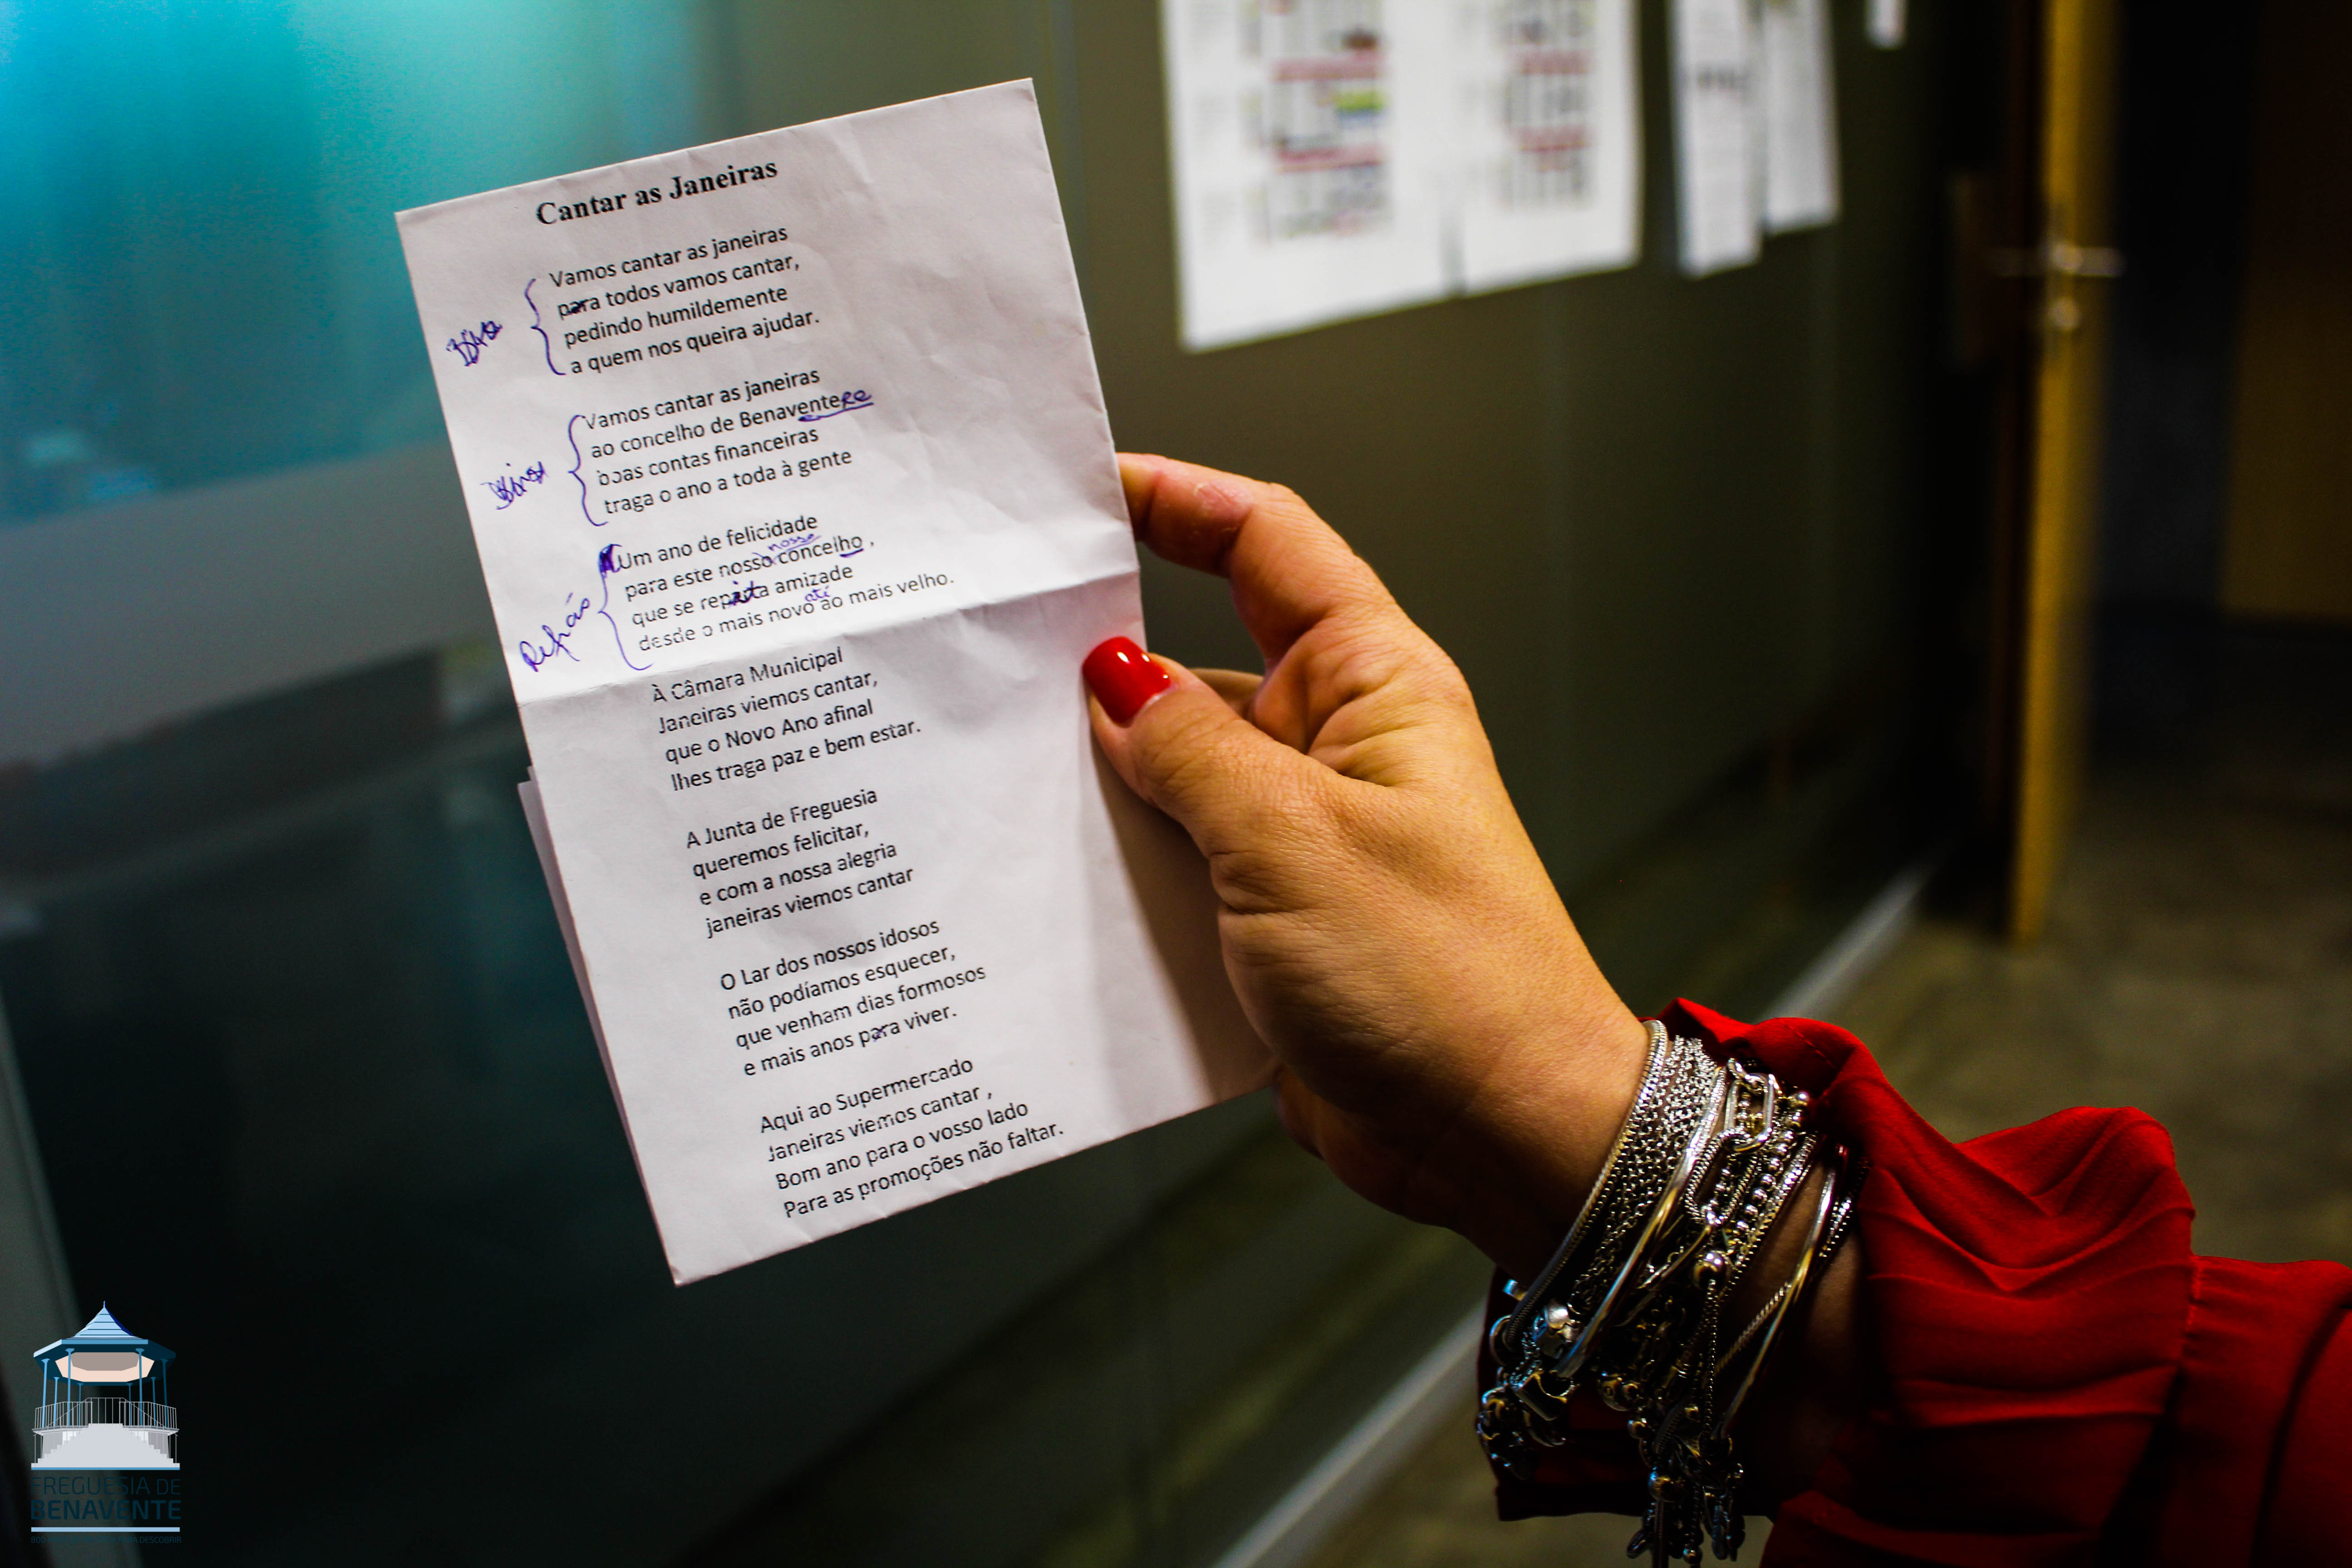 Cantar as Janeiras
Vamos cantar as janeiras
para todos vamos cantar,
pedindo humildemente
a quem nos queira ajudar.
Vamos cantar as janeiras
ao concelho de Benavente
boas contas financeiras
traga o ano a toda à gente
Refrão
Um ano de felicidade
nosso
para este nosso concelho ,
que se reparta amizade
até
desde o mais novo ao mais velho.
À Câmara Municipal
Janeiras viemos cantar,
que o Novo Ano afinal
lhes traga paz e bem estar.
A Junta de Freguesia
queremos felicitar,
e com a nossa alegria
janeiras viemos cantar
O Lar dos nossos idosos
não podíamos esquecer,
que venham dias formosos
e mais anos para viver.
Aqui ao Supermercado
Janeiras viemos cantar ,
Bom ano para o vosso lado
Para as promoções não faltar.
FREGUESIA DE
BENAVENTE